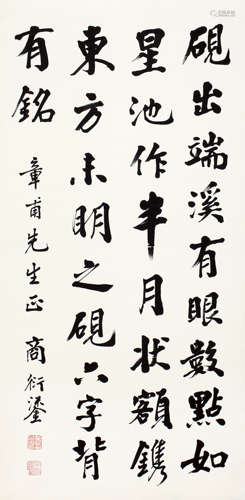 硯出端溪有眼數點如
星池作半月狀額鐫
東方未明之硯六字背
有銘
章甫先生正 商衍鎏